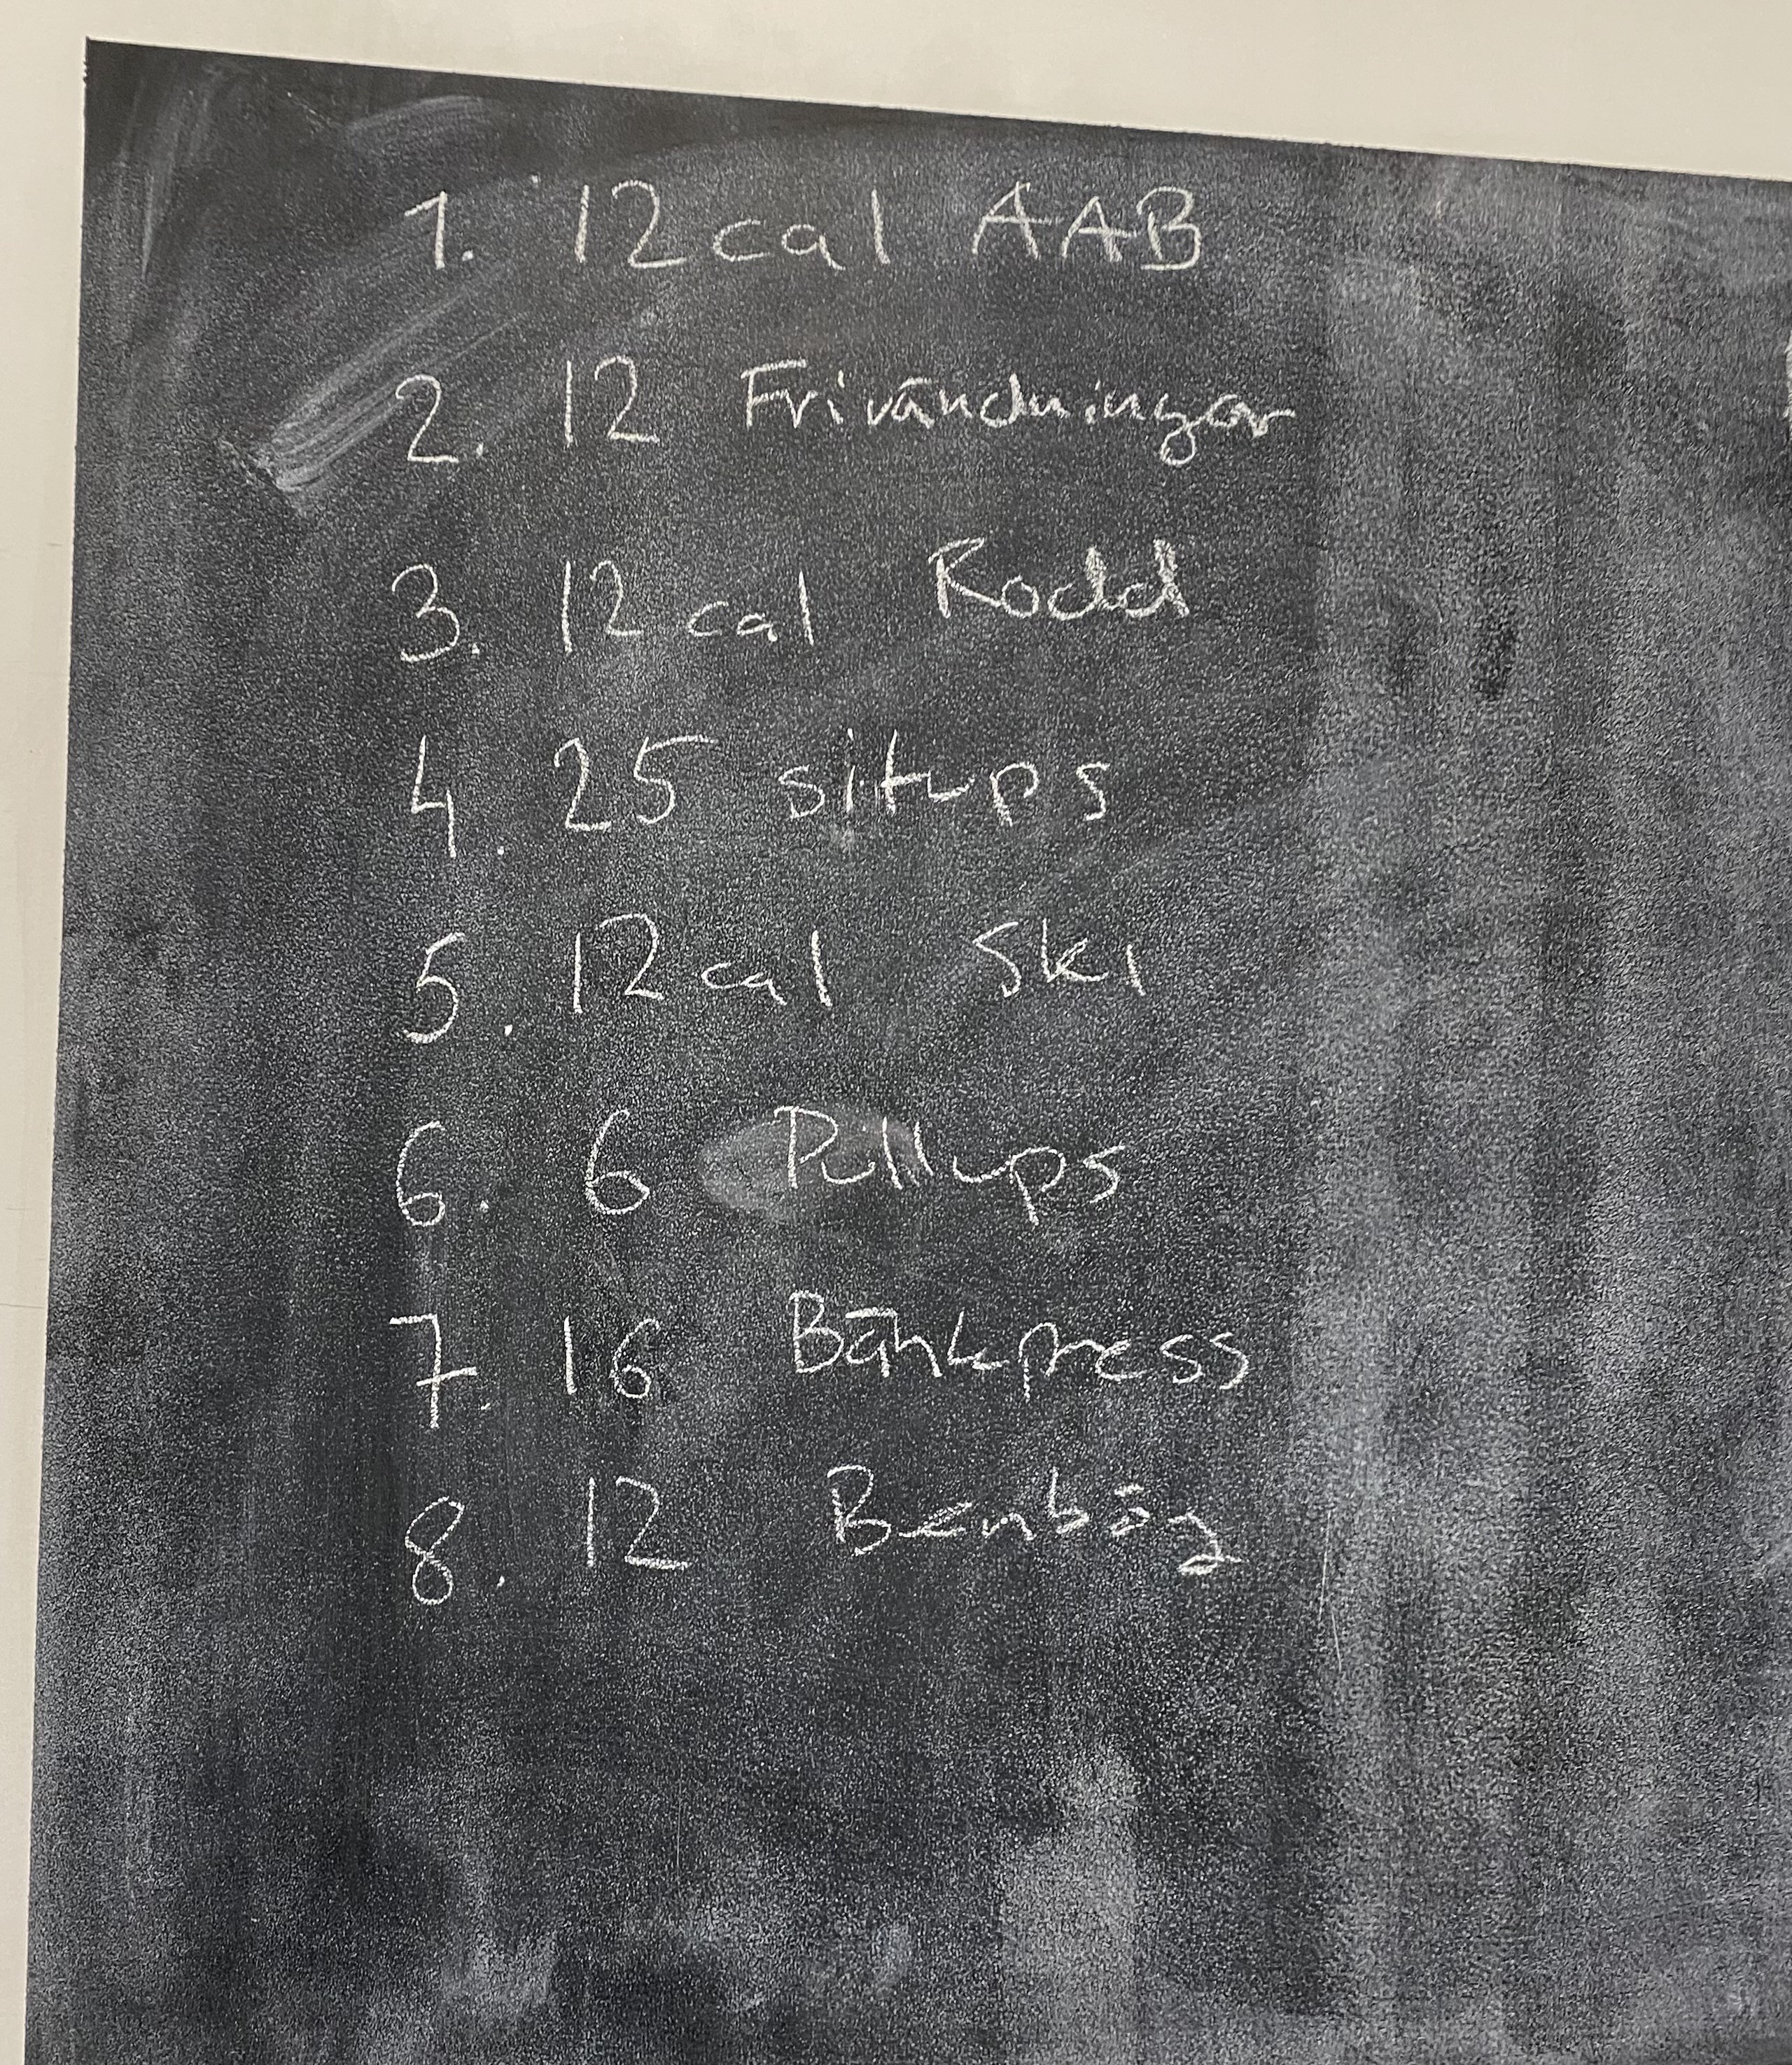 1. 12 cal AAB
2. 12 Frivändningar
3. 12 cal Rodd
4. 25 situps
5. 12 cal Ski
6. 6 Pullups
7. 16 Bänkpress
8. 12 Benböj